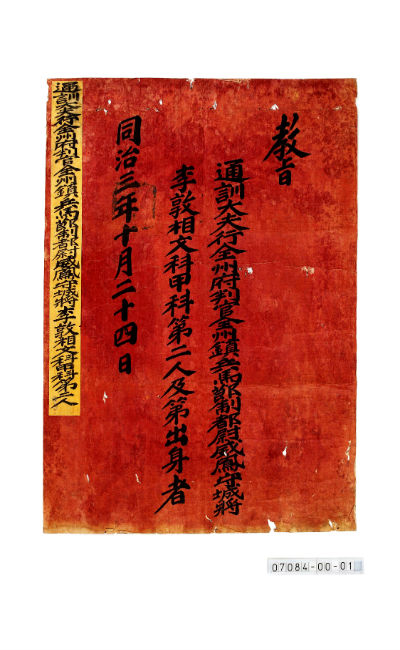 教旨
通訓大夫行全州府判官全州鎮兵馬節制都尉威鳳守城將
李敦相文科甲科第二人及第出身者
同治三年十月二十四日
通訓大夫行全州府判官全州鎮兵馬節制都尉威鳳守城將李敦相文科甲科第二人
07084-00-01